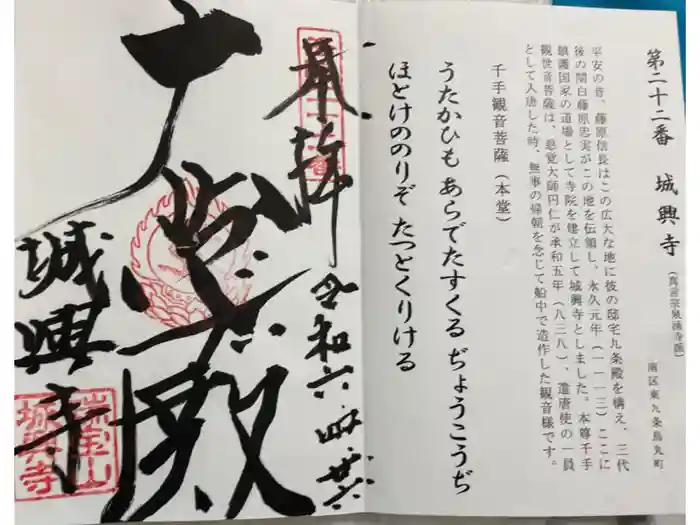 第二十二番　城興寺
(真言宗泉涌寺派)
南区東九条烏丸町
平安の昔、藤原信長はこの広大な地に彼の邸宅九条殿を構え、三代
後の関白藤原忠実がこの地を伝領し、永久元年(一一一三)ここに
鎮護国家の道場として寺院を建立して城興寺としました。本尊千手
観世音菩薩は、慈覚大師円仁が承和五年(八三八)、遣唐使の一員
として入唐した時、無事の帰朝を念じて船中で造作した観音様です。
千手観音菩薩(本堂)
うたかひも あらでたすくる ぢょうこうぢ
ほとけののりぞ たつとくりける
奉拝
令和六 四 廿六
大悲殿
城興寺
瑞宝山
城興寺